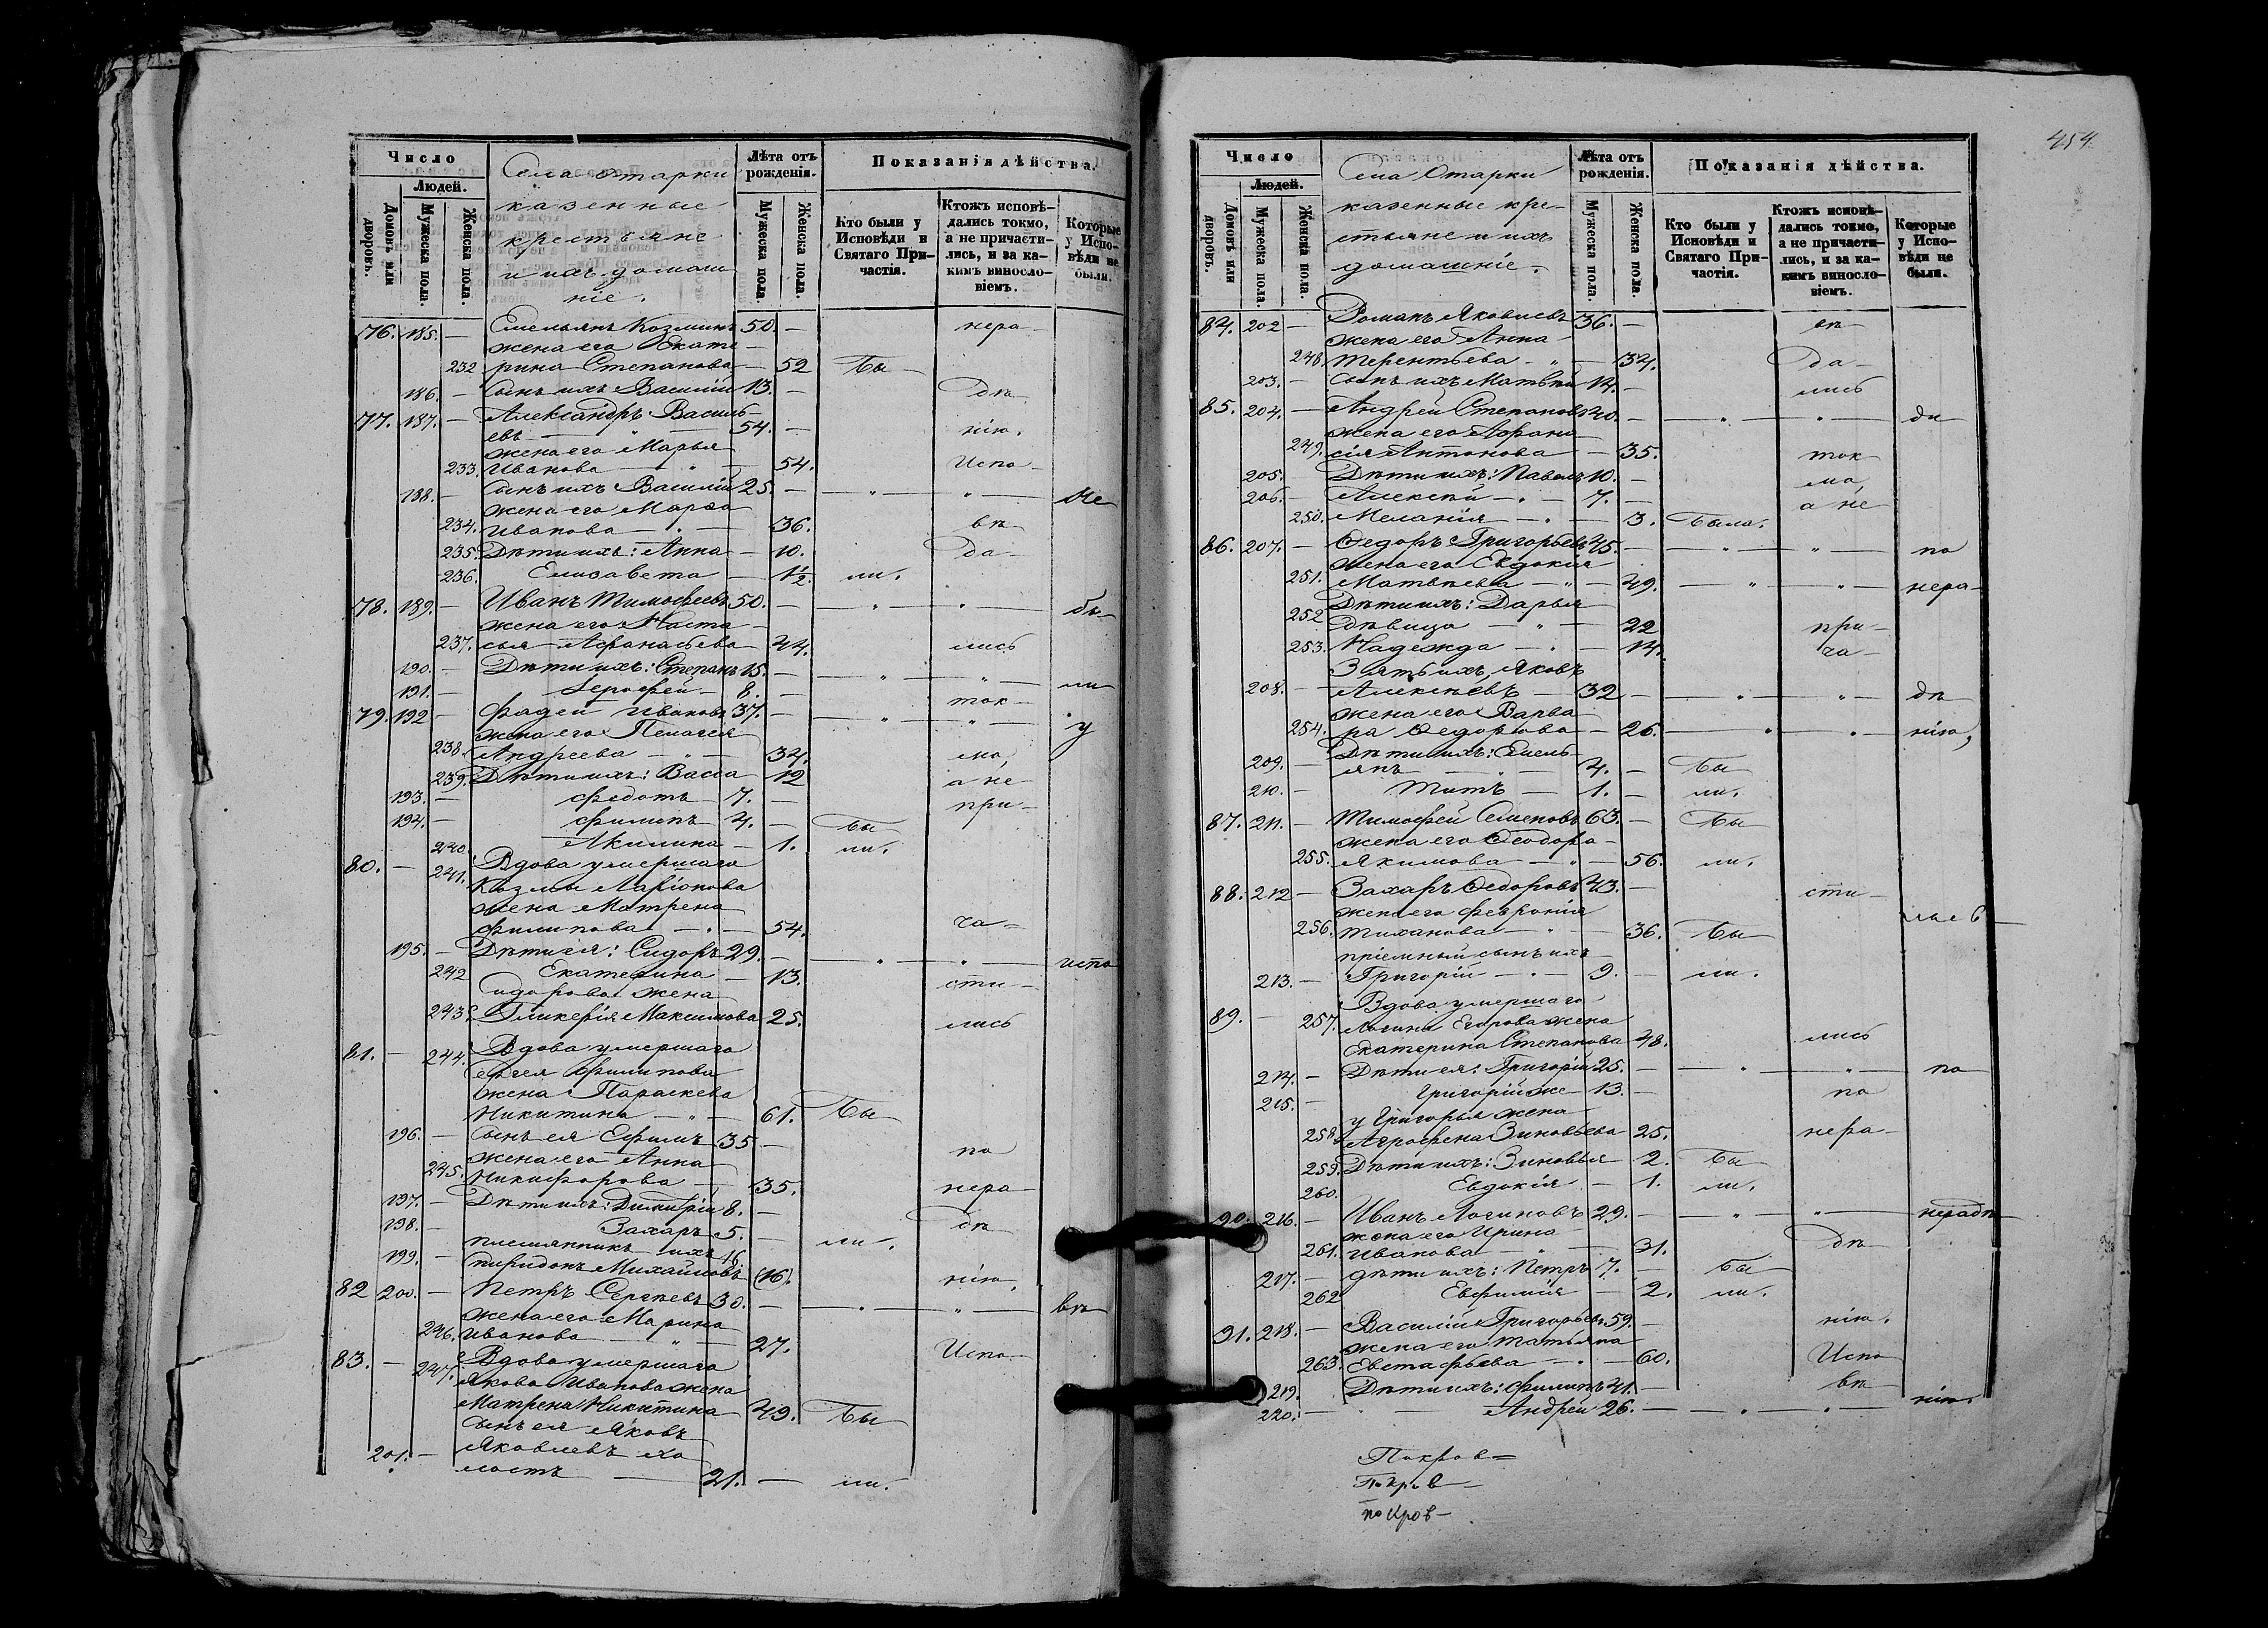 Число
Людей.
Домовъ или дворовъ.
Мужеска пола.
Женска пола.
Села Отарки
казенные
крестьяне
и ихъ домаш
ніе.
Лѣта отъ рожденія.
Мужеска пола.
Женска пола.
Показанія дѣйства.
Кто были у Исповѣди и Святаго Причастія.
Ктожъ исповѣдались токмо, а не причастились, и за какимъ винословіемъ.
Которые у Исповѣди не были.
76. 185. — Емельянъ Козминъ 50. — нера-
жена его Екате-
232 рина Степанова — 52 Бы-
186. — Сынъ ихъ Василій 13. — дѣ-
77. 187. — Александръ Василь-
евъ — " — 54. — нію.
жена его Марья
233. Иванова — " — 54. Испо-
188. — Сынъ ихъ Василій 25. — " — " — Не
жена его Марѳа
234. Иванова — " — 36. вѣ-
235. Дѣти ихъ: Анна — 10. да-
236. Елисавета — 1½. ли.
78. 189. — Иванъ Тимофеевъ 50. — " — " — бы-
жена его Наста-
237. сья Афанасьева 44. лись
190. — Дѣти ихъ: Степанъ 15. —
191. — Ерофей 8. — " — " — ли
79. 192 — Фадей Ивановъ 37. — ток-
жена его Пелагея — " — " — у
238. Андреева — " — 34. мо,
239. Дѣти ихъ: Васса — 12 а не
193. — Федотъ 7. — при-
194. — Филипъ 4. — Бы
240. Акилина — 1. ли.
80. — 241. Вдова умершаго
Козмы Ларіонова
жена Матрена
Филипова — " — 54. ча-
195. — Дѣти ея: Сидоръ 29. — " — " — испо
242 Екатерина — 13. сти-
Сидорова жена
243. Гликерія Максимова 25. лись
81. — 244. Вдова умершаго
Сергея Филипова
жена Параскева
Никитина — " — 61. Бы-
196. — Сынъ ея Ефимъ 35 — по
жена его Анна
245. Никифорова — 35. нера
197. — Дѣти ихъ: Димитрій 8. —
198. — Захаръ 5. — дѣ
племянникъ ихъ 16 ли.
199. — Спиридонъ Михайловъ (16). нію,
82 200. — Петръ Сергѣевъ 30. — " — " — вѣ
жена его Марина
246. Иванова — " — 27.
83. — 247. Вдова умершаго Испо-
Якова Иванова жена
Матрена Никитина 49. Бы
сынъ ея Яковъ
201. — Яковлевъ хо
лостъ — 21. — ли.
454.
Число
Людей.
Домовъ или дворовъ.
Мужеска пола.
Женска пола.
Села Отарки
казенные кре-
стьяне и ихъ
домашніе.
Лѣта отъ рожденія.
Мужеска пола.
Женска пола.
Показанія дѣйства.
Кто были у Исповѣди и Святаго Причастія.
Ктожъ исповѣдались токмо, а не причастились, и за какимъ винословіемъ.
Которые у Исповѣди не были.
84. 202 — Романъ Яковлевъ 36. — вѣ
жена его Анна
248. Терентьева — " — 34. да-
203. — Сынъ ихъ Матвѣй 14. — лись
85. 204. — Андрей Степановъ 40. — " — " — ди
жена его Афана
249. сія Антонова — 35. ток
205. — Дѣти ихъ: Павелъ 10. — мо,
206. — Алексѣй — " — 7. — а не
250. Меланія — " — 3. Была.
86. 207. — Ѳедоръ Григорьевъ 45. — " — " — по
жена его Евдокія
251. Матвѣева — " — 49. — " — " — нера-
Дѣти ихъ: Дарья
252 дѣвица — " — 22 при-
253. Надежда — " — 14. ча-
Зять ихъ, Яковъ
208. — Алексѣевъ — 32 — " — " — дѣ
жена его Варва
254. ра Ѳедорова — 26. — " — " — нію,
Дѣти ихъ: Емель-
209. — янъ — " — 4. — Бы
210. — Титъ — 1. — ли.
87. 211. — Тимофей Семеновъ 63. — Бы
жена его Ѳеодора
255. Якимова — " — 56. ли.
88. 212 — Захаръ Ѳедоровъ 43. — сти-
жена его Февронія
256. Тиханова — " — 36. Бы
пріемный сынъ ихъ
213. — Григорій — " — 9. — ли.
Вдова умершаго
89. — 257. Логина Егорова жена
Екатерина Степанова 48. лись
214. — Дѣти ея: Григорій 25. — " — " — по
215. — Григорій же — 13. — по
у Григорья жена
258. Аграфена Зиновьева 25. нера-
259. Дѣти ихъ: Зиновья 2. Бы
260. Евдокія — 1. ли.
90. 216. — Иванъ Логиновъ 29. — " — " — нерадѣ
жена его Ирина
261. Иванова — " — 31. дѣ
217. — дѣти ихъ: Петръ 7. — Бы
262 Евфимія — 2. ли.
91. 218. — Василій Григорьевъ 59. — нію.
жена его Татьяна
263. Евстафьева — " — 60. Испо
219. — Дѣти ихъ: Филипъ 41. — вѣ
220. — Андрей 26. — " — " — нію.
Покров=
Покров—
покров—